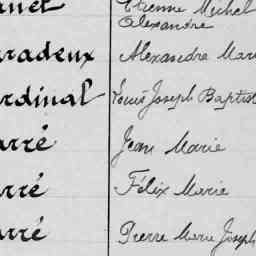 Etienne Michel
Alexandre
radeux Alexandre Mari
rdinal Louis Joseph Baptist
arré Jean Marie
arré Félix Marie
arré Pierre Marie Joseph